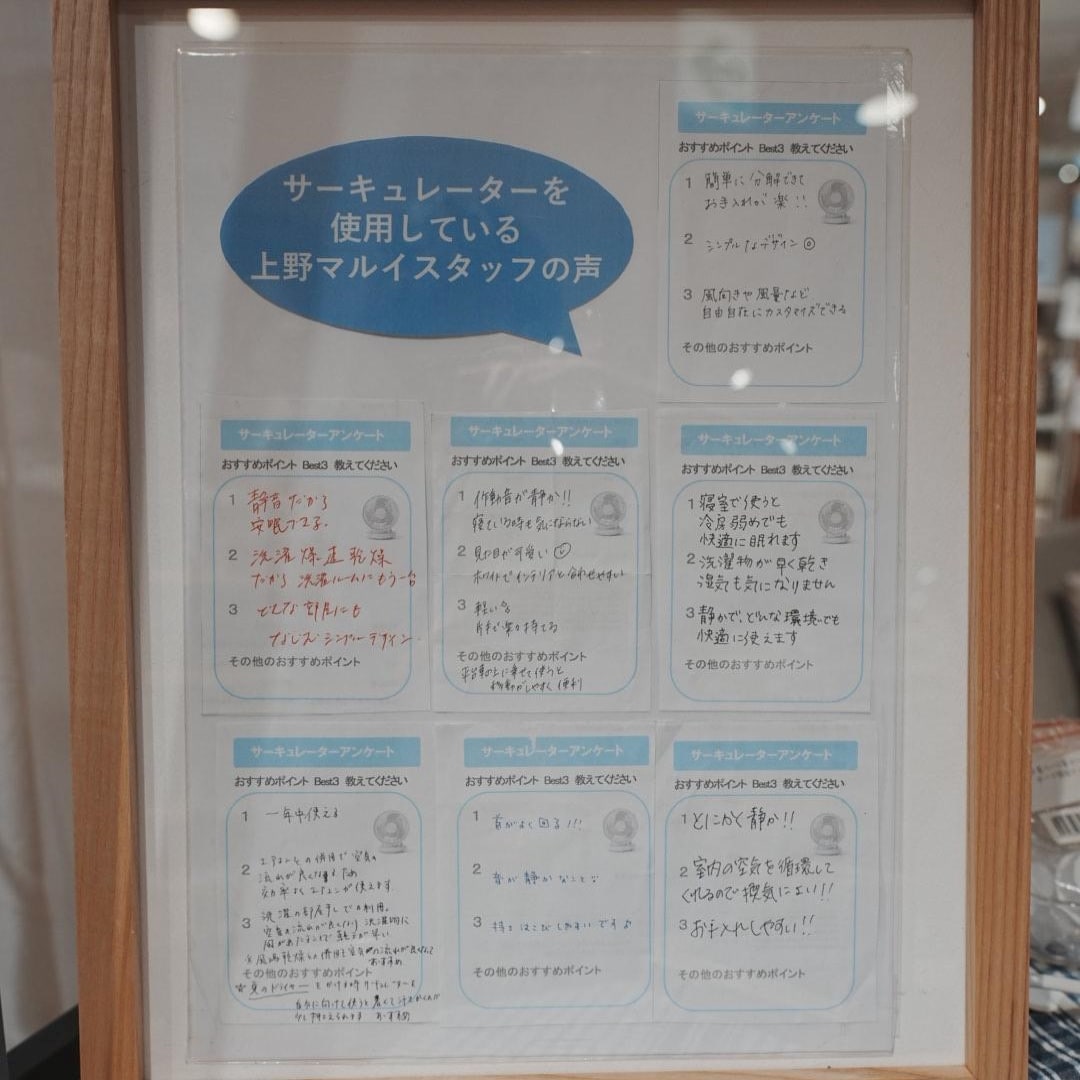 サーキュレーターを
使用している
上野マルイスタッフの声
サーキュレーターアンケート
おすすめポイント Best3 教えてください
1 簡単に分解できて
お手入れが楽!!
2 シンプルなデザイン◎
3 風向きや風量など
自由自在にカスタマイズできる
その他のおすすめポイント
サーキュレーターアンケート
おすすめポイント Best3 教えてください
1 静音だから
安眠できる。
2 洗濯
だから 洗濯ルームにもう一台
3 どんな部屋にも
なじむシンプルデザイン
その他のおすすめポイント
サーキュレーターアンケート
おすすめポイント Best3 教えてください
1 作動音が静か!!
寝ている時も気にならない
2 見た目が可愛い
ホワイトでインテリアと合わせやすい
3 軽い
片手で楽々持てる
その他のおすすめポイント
に乗せて使うと
移動がしやすく 便利
サーキュレーターアンケート
おすすめポイント Best3 教えてください
1 寝室で使うと
冷房弱めでも
快適に眠れます
2 洗濯物が早く乾き
湿気も気になりません
3 静かで、どんな環境でも
快適に使えます
その他のおすすめポイント
サーキュレーターアンケート
おすすめポイント Best3 教えてください
1 一年中使える
2 エアコンとの併用で空気の
流れが良くなるため
効率よくエアコンが使えます。
3 洗濯の部屋干しでの利用。
空気の流れが良くなり 洗濯物に
風があたることで 乾きが早い
その他のおすすめポイント
夏のドライヤー
自分に向けて使うと暑くて汗をかくのが
少し抑えられます おすすめ
サーキュレーターアンケート
おすすめポイント Best3 教えてください
1 首がよく回る!!!
2 音が静かなこと
3 持ちはこびしやすいです
その他のおすすめポイント
サーキュレーターアンケート
おすすめポイント Best3 教えてください
1 とにかく静か!!
2 室内の空気を循環して
くれるので換気によい!!
3 お手入れしやすい!!
その他のおすすめポイント